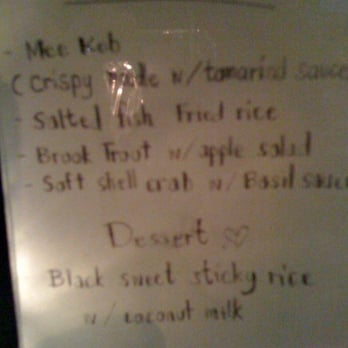 - Mee Keb
(Crispy w/tamarind sauce
- Salted fish Fried rice
- Brook Trout w/apple salad
- Soft shell crab w/ Basil sauce
Dessert ♡
Black sweet sticky rice
w/ coconut milk